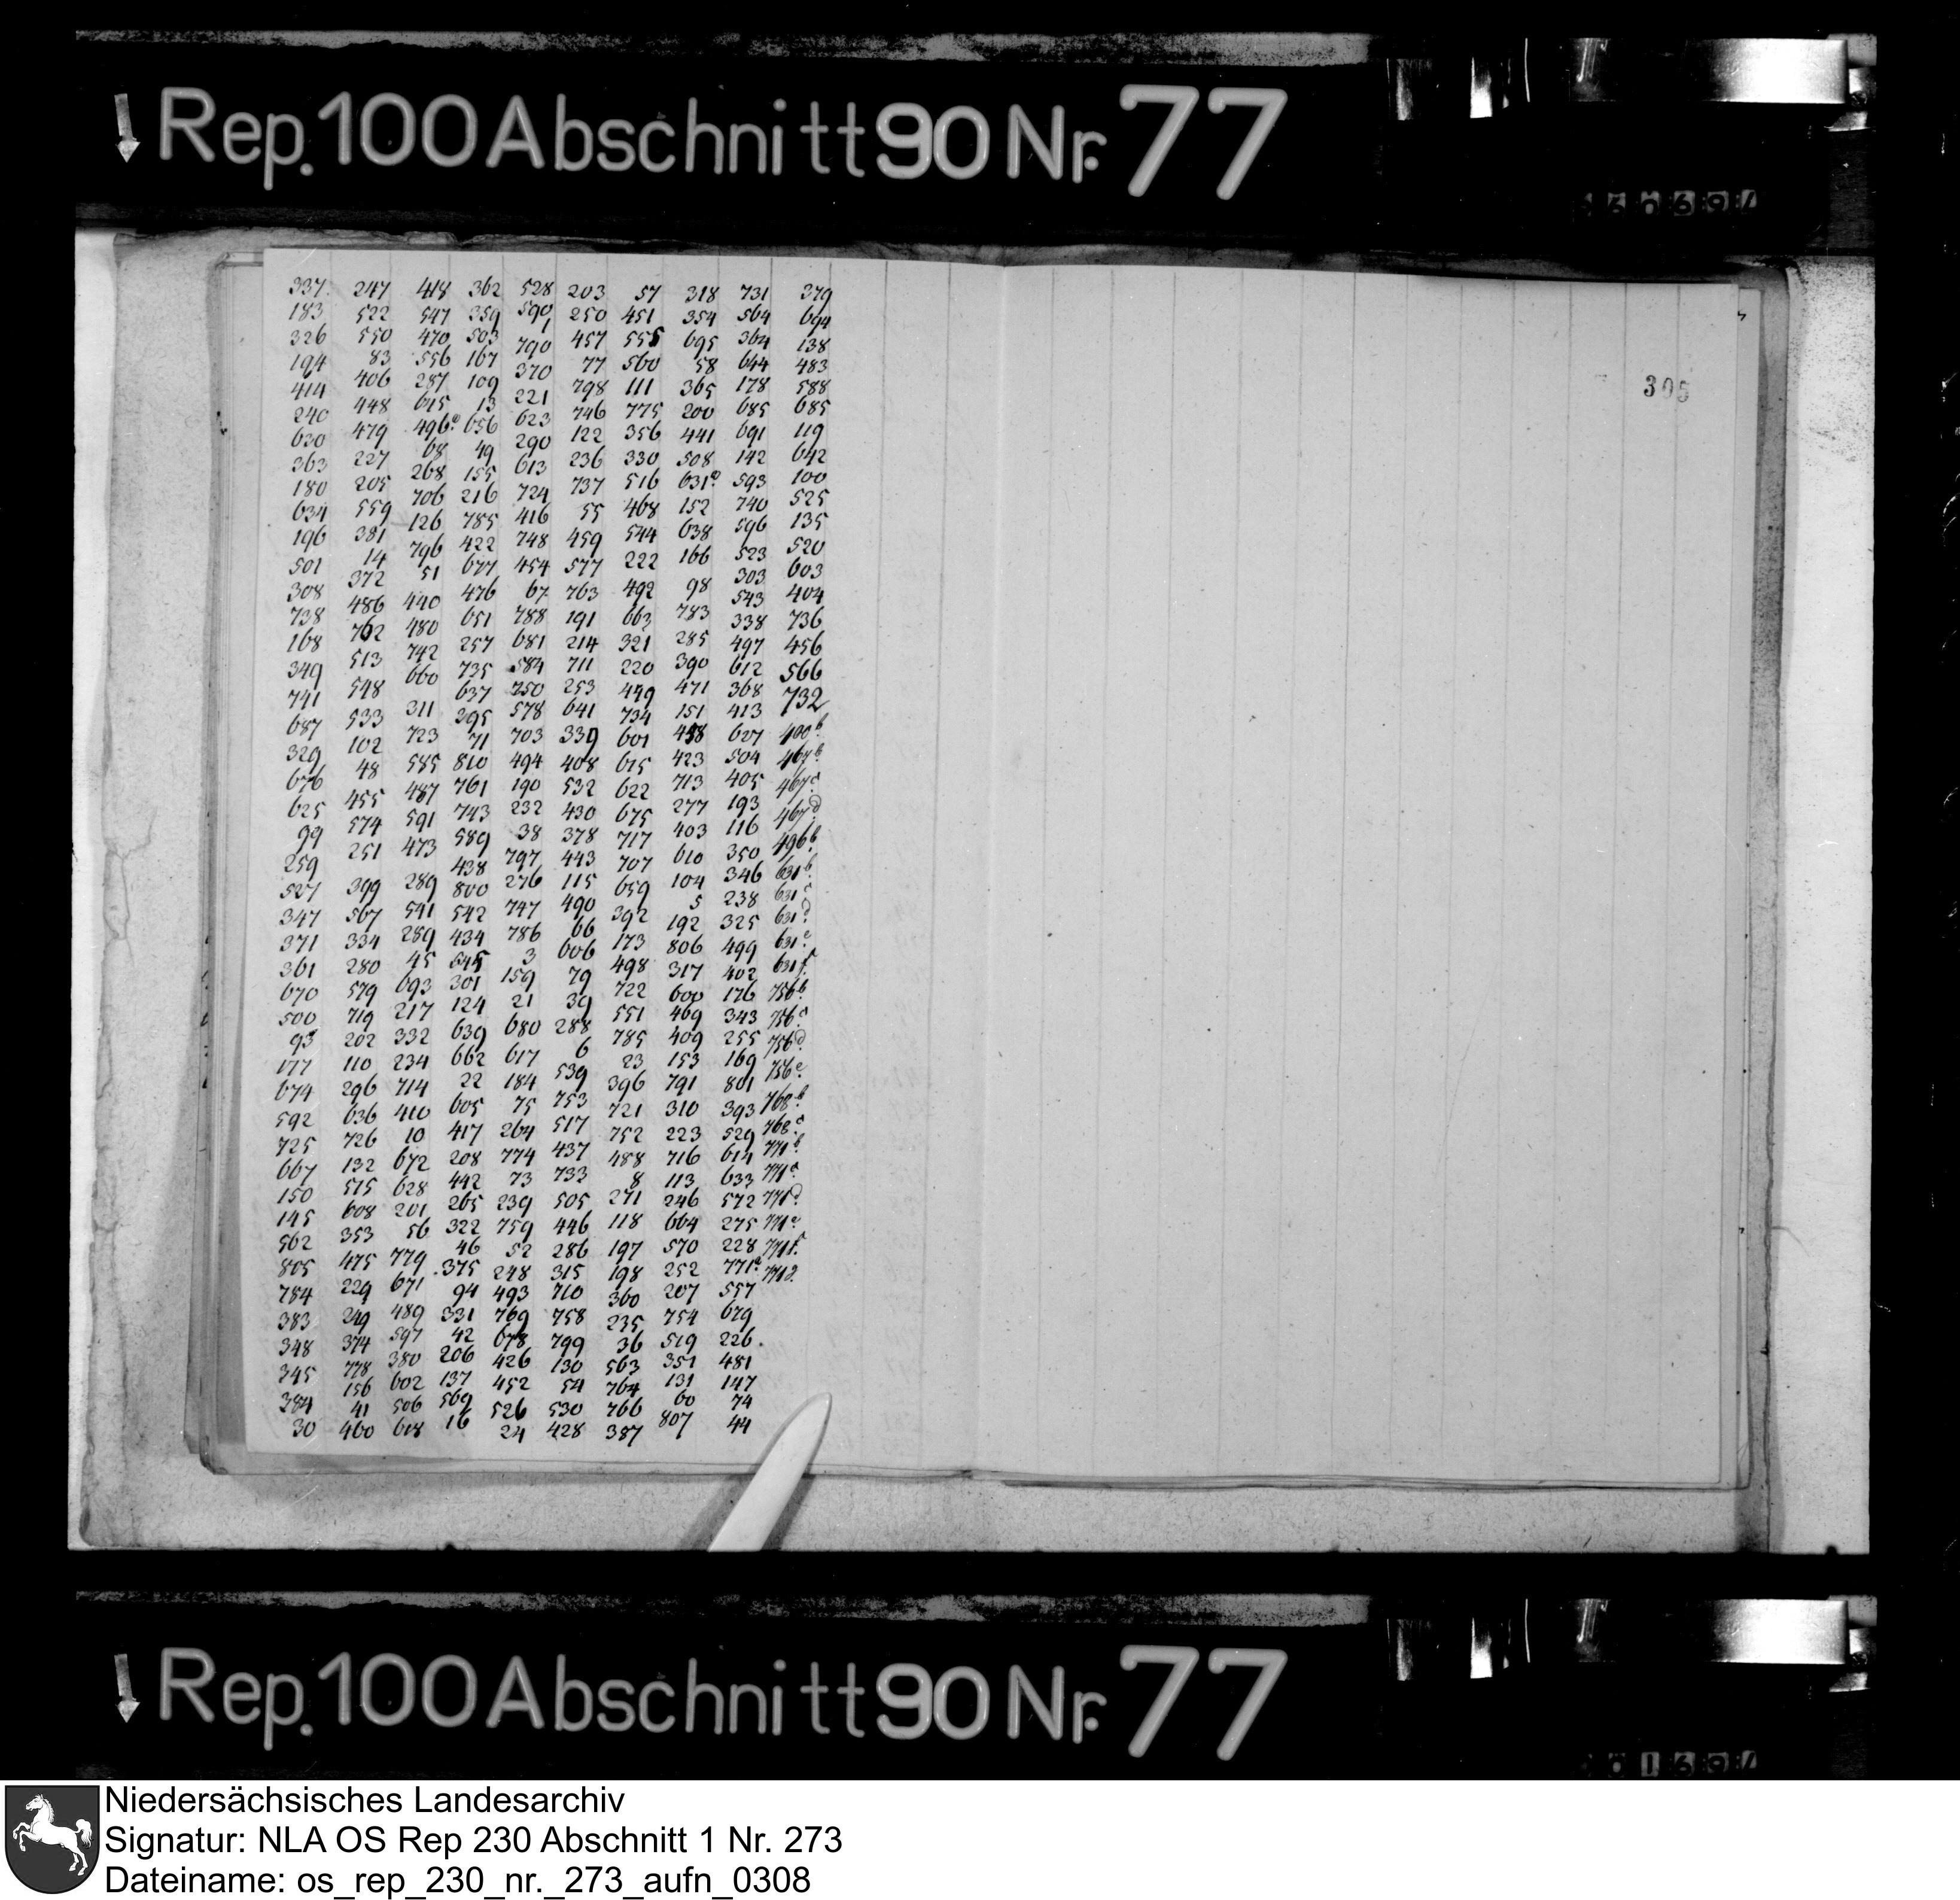 Rep. 100 Abschnitt 90 Nr. 77
337. 247 418 362 528 203 57 318 731 379
183 522 547 259 590 250 451 354 564 694
326 550 470 503 1 457 555 695 364 138
194 83 556 167 790 77 560 58 644 483
414 406 287 109 370 798 111 365 178 588
240 448 645 13 221 746 775 200 685 685
620 479 496a. 656 623 122 356 441 691 119
363 227 68 49 290 236 330 508 142 642
180 205 268 155 613 737 516 631a 593 100
634 559 706 216 724 55 468 152 740 525
196 381 126 785 416 459 544 638 596 135
501 14 796 422 748 577 222 166 523 520
308 372 51 677 454 763 492 98 303 603
738 486 440 476 67 191 663 783 543 404
168 762 480 651 788 214 321 285 338 736
349 513 742 257 681 711 220 390 497 456
741 548 660 735 584 253 449 471 612 566
687 533 311 637 750 641 734 151 368 732
329 102 723 395 578 339 601 458 413 400b.
676 48 585 71 703 408 615 423 627 467b.
625 455 487 810 494 532 622 713 504 467c.
99 574 591 761 190 430 675 277 405 467d.
259 251 473 743 232 378 717 403 193 496b.
527 399 289 589 38 443 707 610 116 631b.
347 567 541 438 797 115 659 104 350 631c.
371 334 289 800 276 490 392 5 346 631d.
361 280 45 542 747 66 173 192 238 631e.
670 579 693 434 786 606 498 806 325 631f.
500 719 217 645 3 79 722 317 499 756b.
93 202 332 301 159 39 551 600 402 756c.
177 110 234 124 21 288 785 469 176 756d.
674 296 714 639 680 6 23 409 343 756e.
592 636 410 662 617 539 396 153 255 768b.
725 726 10 22 184 753 721 791 169 768c.
667 132 672 605 75 517 752 310 801 771b.
150 515 628 417 264 437 488 223 393 771c.
145 608 201 208 774 733 8 716 529 771d.
562 353 56 442 73 505 271 113 614 771e.
805 475 779 265 239 446 118 246 633 771f.
784 229 671 322 759 286 197 664 572 771g.
383 249 489 46 52 315 198 570 275
348 374 597 375 248 710 360 252 228
345 778 380 94 493 758 235 207 771a
384 156 602 331 769 799 36 754 557
30 41 506 42 678 130 563 519 679
460 618 206 426 54 764 351 226.
137 452 530 766 131 481
569 526 428 387 60 147
16 24 807 74
44
305
Rep. 100 Abschnitt 90 Nr. 77
Niedersächsisches Landesarchiv
Signatur: NLA OS Rep 230 Abschnitt 1 Nr. 273
Dateiname: os_rep_230_nr._273_aufn_0308